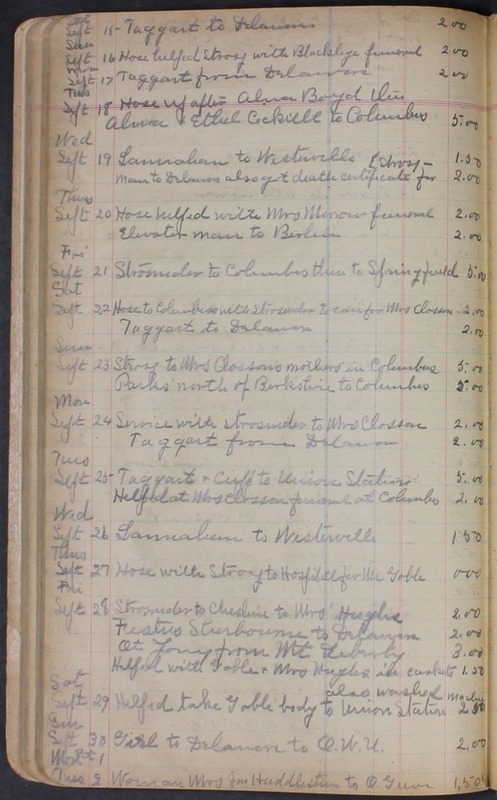 Sat
Sept 15- Taggart to Delaware 2.00
Sun
Sept 16 Hose helped Strosy with Blackleye funeral 2.00
Mon
Sept 17 Taggart from Delaware 2.00
Tues
Sept 18 Hose up after Alma Boyd then
Alma & Ethel Cockrell to Columbus 5.00
Wed
Sept 19 Lannahan to Westerville (Strosy- 1.50
man to Delaware also got death certificate for 2.00
Thurs
Sept 20 Hose helped with Mrs Morrow funeral 2.00
Elevator man to Berlin 2.00
Fri
Sept 21 Strosnider to Columbus then to Springfield 5.00
Sat
Sept 22 Hose to Columbus with Strosnider to care for Mrs Closson 2.00
Taggart to Delaware 2.00
Sun
Sept 23 Strosy to Mrs Closson's mothers in Columbus 5.00
Parks' north of Berkshire to Columbus 5.00
Mon
Sept 24 Service with Strosnider to Mrs Closson 2.00
Taggart from Delaware 2.00
Tues
Sept 25- Taggart & to Union Station 5.00
Helped at Mrs Closson funeral at Columbus 2.00
Wed
Sept 26 Lannahan to Westerville 1.50
Thurs
Sept 27 Hose with Strosy to Hospital for Mr Gable 000
Fri
Sept 28 Strosnider to Cheshire to Mrs Hughs 2.00
Festus Sherbourne to Delaware 2.00
from Mt Liberty 3.00
Helped with Gable & Mrs Hughs in caskets 1.50
Sat
also washed
Sept 29 Helped take Gable body to Union Station 2.50
Sun
Sept 30 Girl to Delaware to O.W.U. 2.00
Mon Oct 1
Tues 2 Woman Mrs Jim Huddleston to 1.50